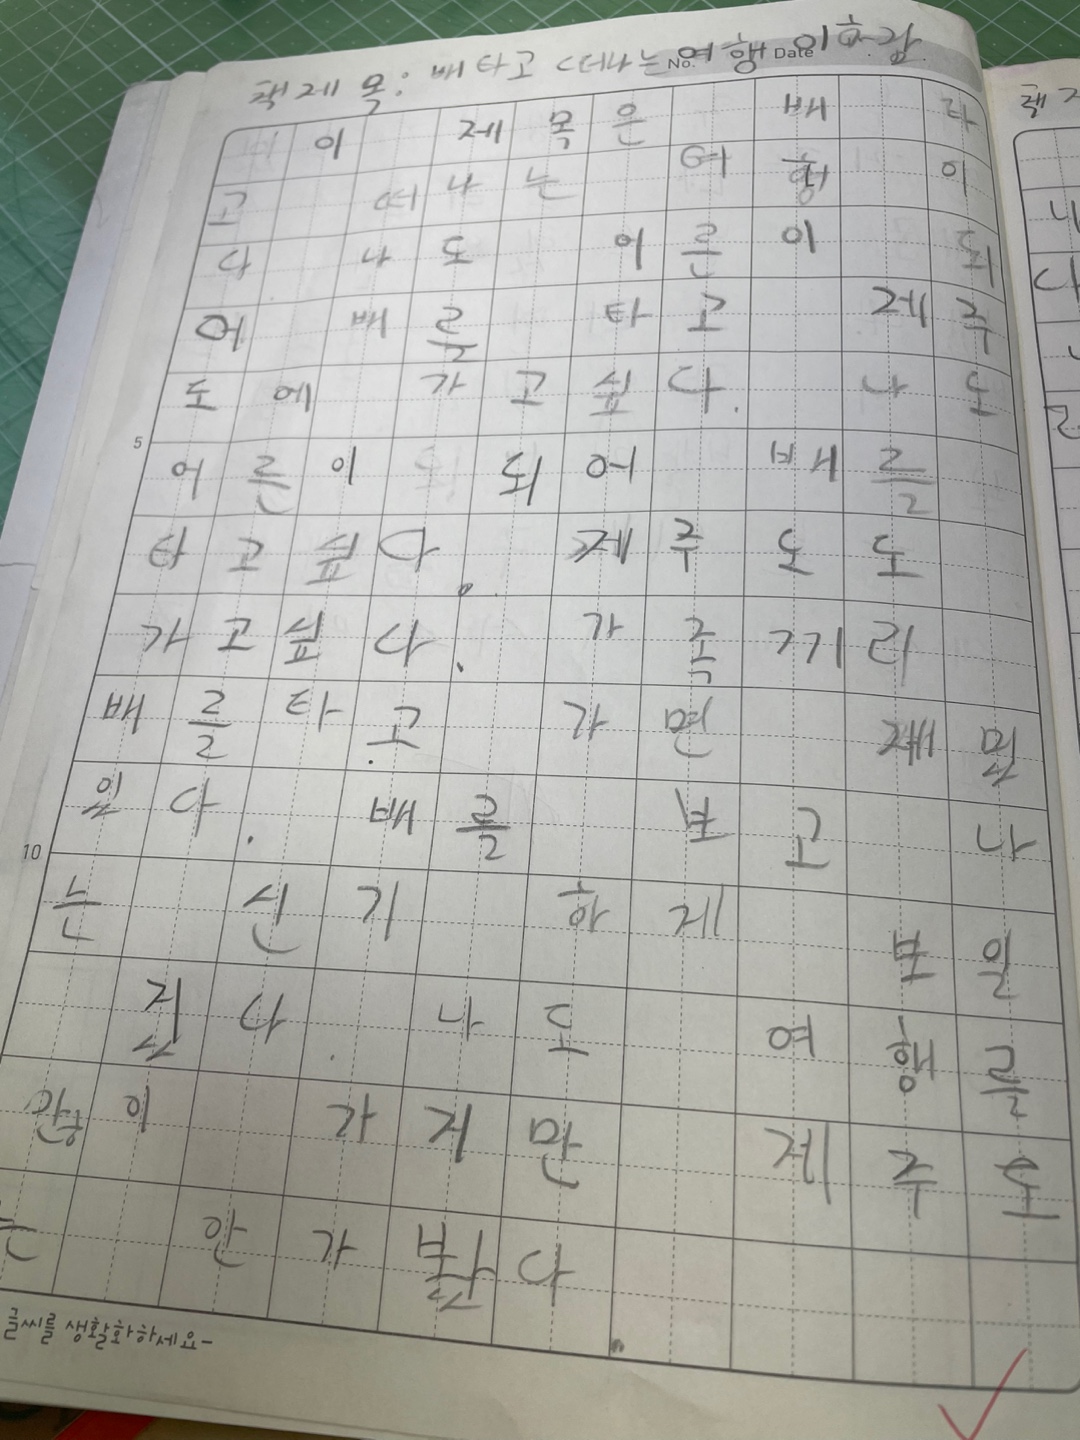 책제목: 배타고 떠나는 여행 이하람
No. Date
이 제목은 배 타
고 떠나는 여행 이
다 나도 어른이 되
어 배를 타고 제주
도에 가고싶다. 나도
5
어른이 되어 배를
타고싶다. 제주도도
가고싶다. 가족끼리
배를타고. 가면 재밌
있다. 배를 보고 나
10
는 신기하게 보일
진다. 나도 여행를
많이 가지만 제주도
는 안가봤다.
글씨를 생활화하세요-
책제